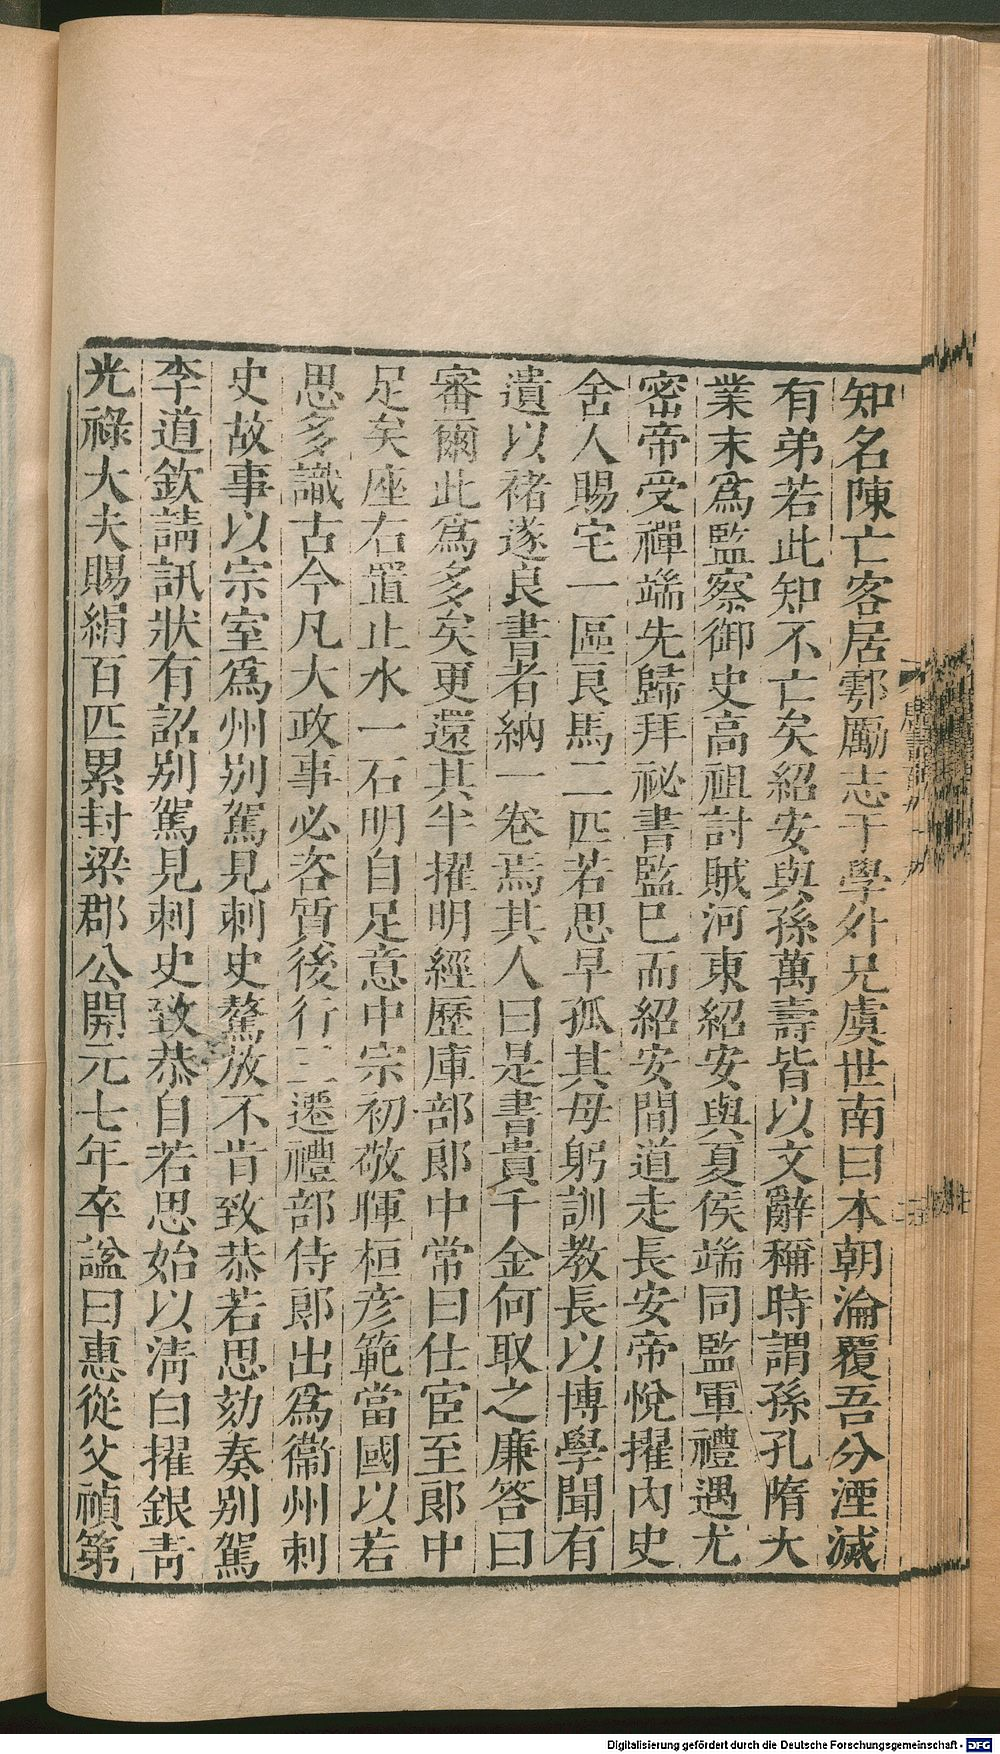 知名陳亡客居鄠勵志于學外兄虞世南曰本朝淪覆吾分湮滅
有弟若此知不亡矣紹安與孫萬壽皆以文辭稱時謂孫孔隋大
業末爲監察御史高祖討賊河東紹安與夏侯端同監軍禮遇尤
密帝受禪端先歸拜祕書監巳而紹安間道走長安帝悅擢內史
舍人賜宅一區良馬二匹若思早孤其母躬訓教長以博學聞有
遺以褚遂良書者納一卷焉其人曰是書貴千金何取之廉答曰
審爾此爲多矣更還其半擢明經歷庫部郎中常曰仕宦至郎中
足矣座右置止水一石明自足意中宗初敬暉桓彥範當國以若
思多識古今凡大政事必咨質後行三遷禮部侍郎出爲衞州刺
史故事以宗室爲州別駕見刺史驁放不肯致恭若思劾奏別駕
李道欽請訊狀有詔別駕見刺史致恭自若思始以淸白擢銀靑
光祿大夫賜絹百匹累封梁郡公開元七年卒諡曰惠從父禎第
Digitalisierung gefördert durch die Deutsche Forschungsgemeinschaft - DFG